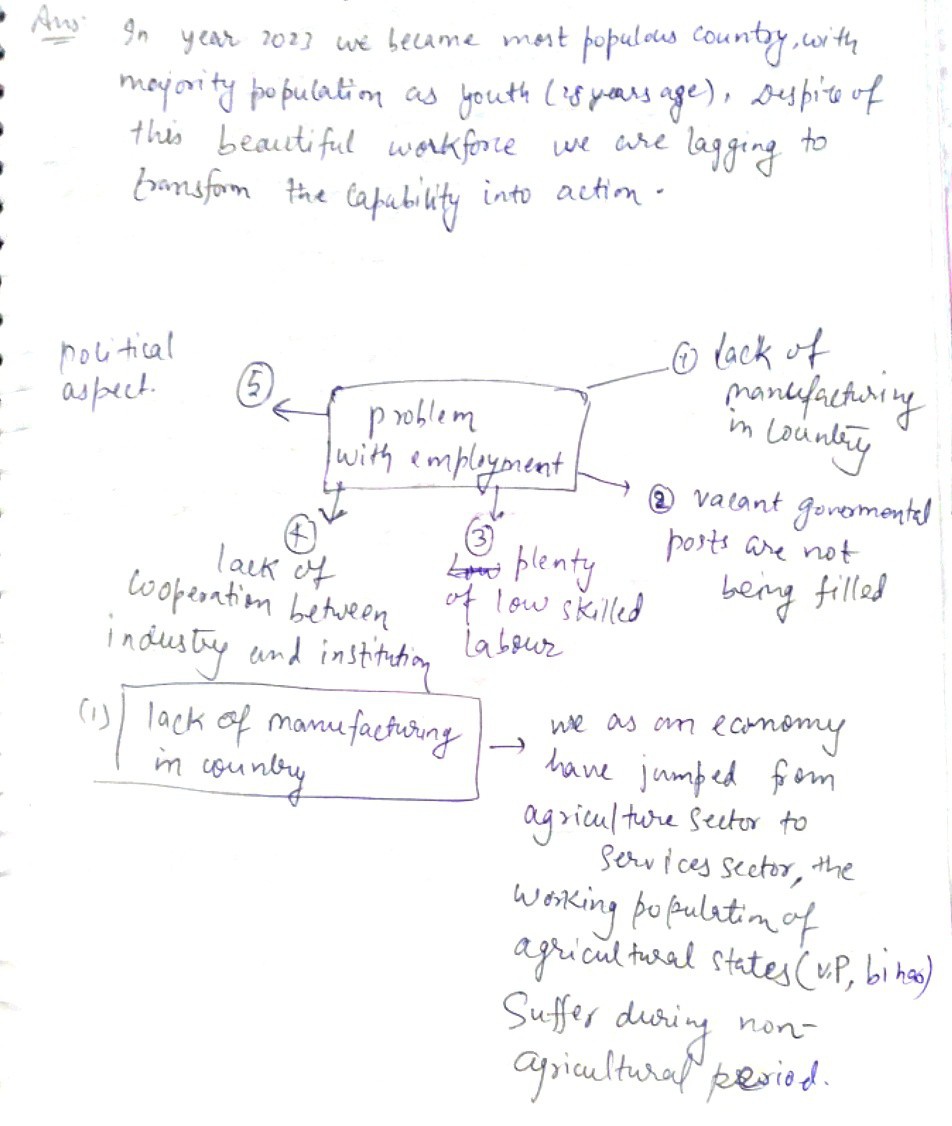 Ans:
In year 2023 we became most populous country, with
majority population as youth (28 years age). Despite of
this beautiful workforce we are lagging to
transform the capability into action.
political
aspect.
5
problem
with employment
1 lack of
manufacturing
in country
2 vacant govermental
posts are not
being filled
3
Low plenty
of low skilled
labour
4
lack of
cooperation between
industry and institution
(1) lack of manufacturing
in country
→ we as an economy
have jumped from
agriculture sector to
services sector, the
working population of
agricultural states (U.P, bihar)
Suffer during non-
agricultural period.